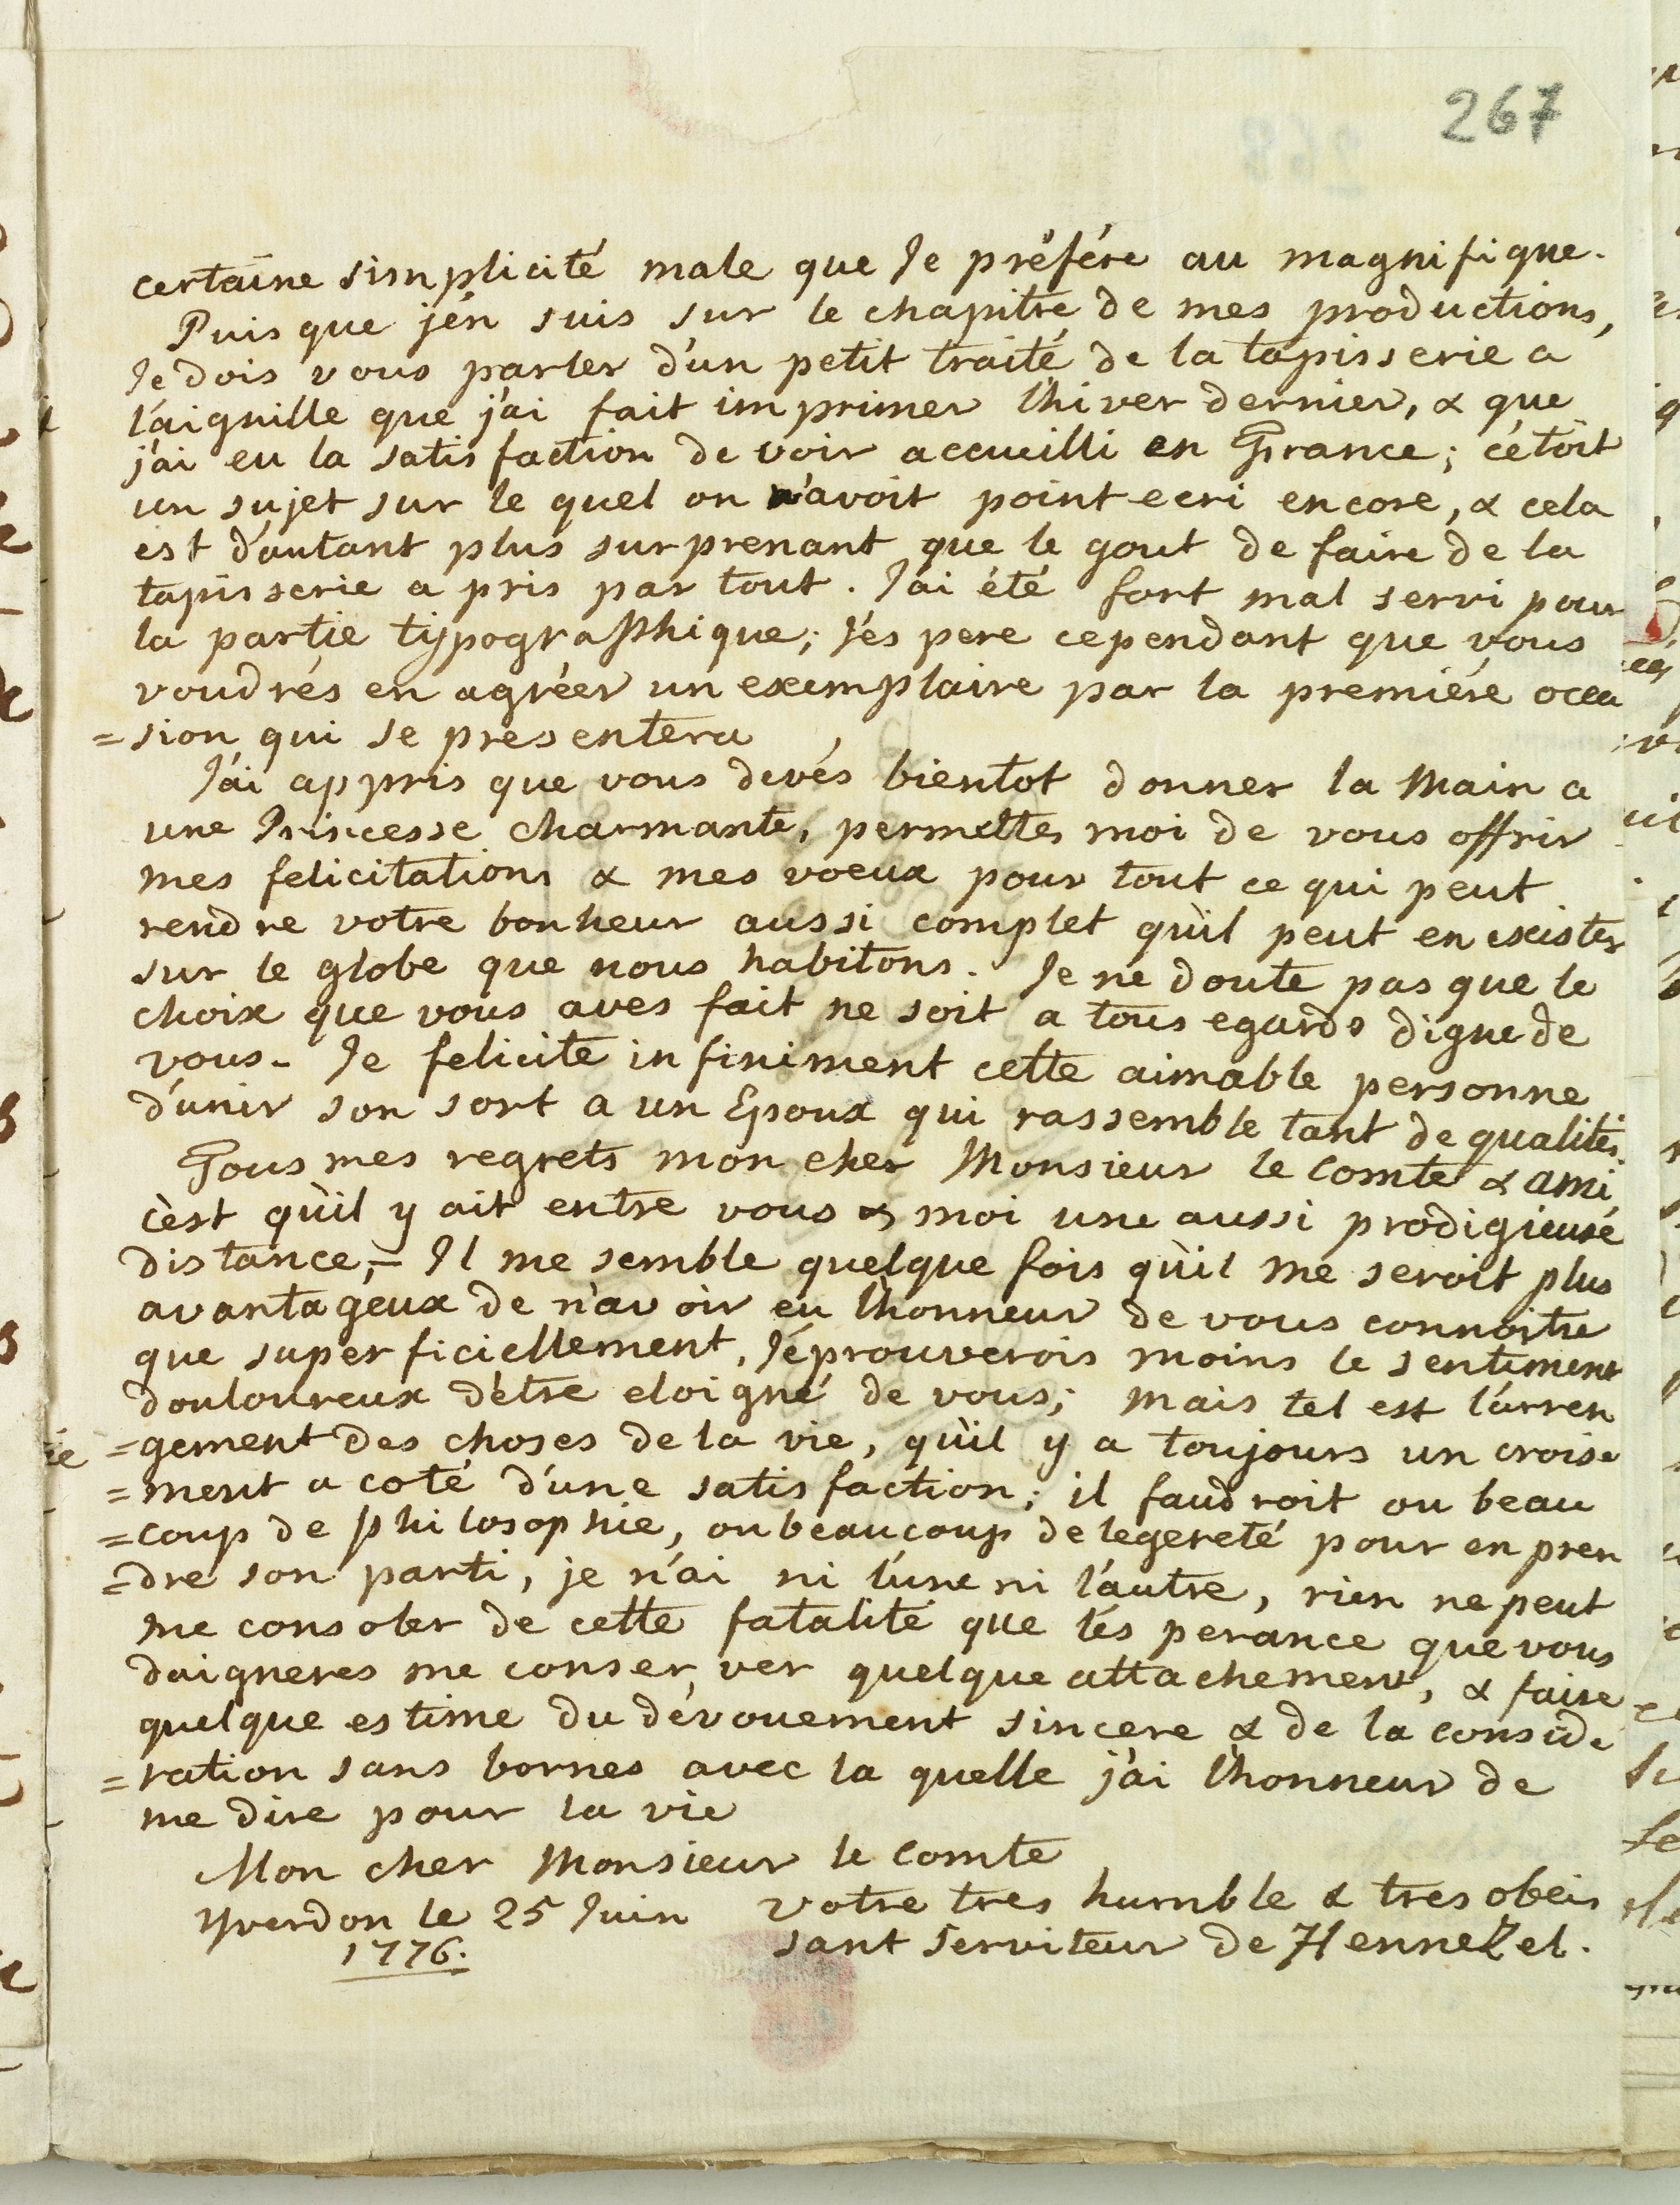 267
certaine simplicité male que Je préfére au magnifique.
Puis que j'én suis sur le chapitre de mes productions,
Je dois vous parler d'un petit traité de la tapisserie a
l'aiguille que j'ai fait imprimer l'hiver dernier, & que
j'ai eu la satisfaction de voir accueilli en France; c'étoit
un sujet sur le quel on n'avoit point ecri encore, & cela
est d'autant plus surprenant que le gout de faire de la
tapisserie a pris par tout. J'ai été fort mal servi pour
la partie typographique; J'és pere cependant que vous
voudrés en agréer un exemplaire par la premiére occa
=sion qui se presentera
J'ai appris que vous devés bientot donner la Main a
une Princesse charmante, permettes moi de vous offrir
mes felicitations & mes voeux pour tout ce qui peut
rendre votre bonheur aussi complet qu'il peut en exister
sur le globe que nous habitons. Je ne doute pas que le
choix que vous aves fait ne soit a tous egards digne de
vous- Je felicite infiniment cette aimable personne
d'unir son sort a un Epoux qui rassemble tant de qualités.
Tous mes regrets mon cher Monsieur le Comte & ami
c'est qu'il y ait entre vous & moi une aussi prodigieuse
distance,- Il me semble quelque fois qu'il me seroit plus
avantageux de n'avoir eu l'honneur de vous connoitre
que superficiellement, J'éprouverois moins le sentiment
douloureux d'être eloigné de vous; mais tel est l'arren
=gement des choses de la vie, qu'il y a toujours un croise
=ment a coté d'une satisfaction; il faudroit ou beau
=coup de philosophie, ou beaucoup de legereté pour en pren
=dre son parti, je n'ai ni l'une ni l'autre, rien ne peut
me consoler de cette fatalité que l'és perance que vous
daigneres me conserver quelque attachement, & faire
quelque estime du dévouement sincere & de la considé
=ration sans bornes avec la quelle j'ai l'honneur de
me dire pour la vie
Mon cher Monsieur le Comte
Yverdon le 25 Juin votre tres humble & tres obeis
1776. sant serviteur de Hennezel.